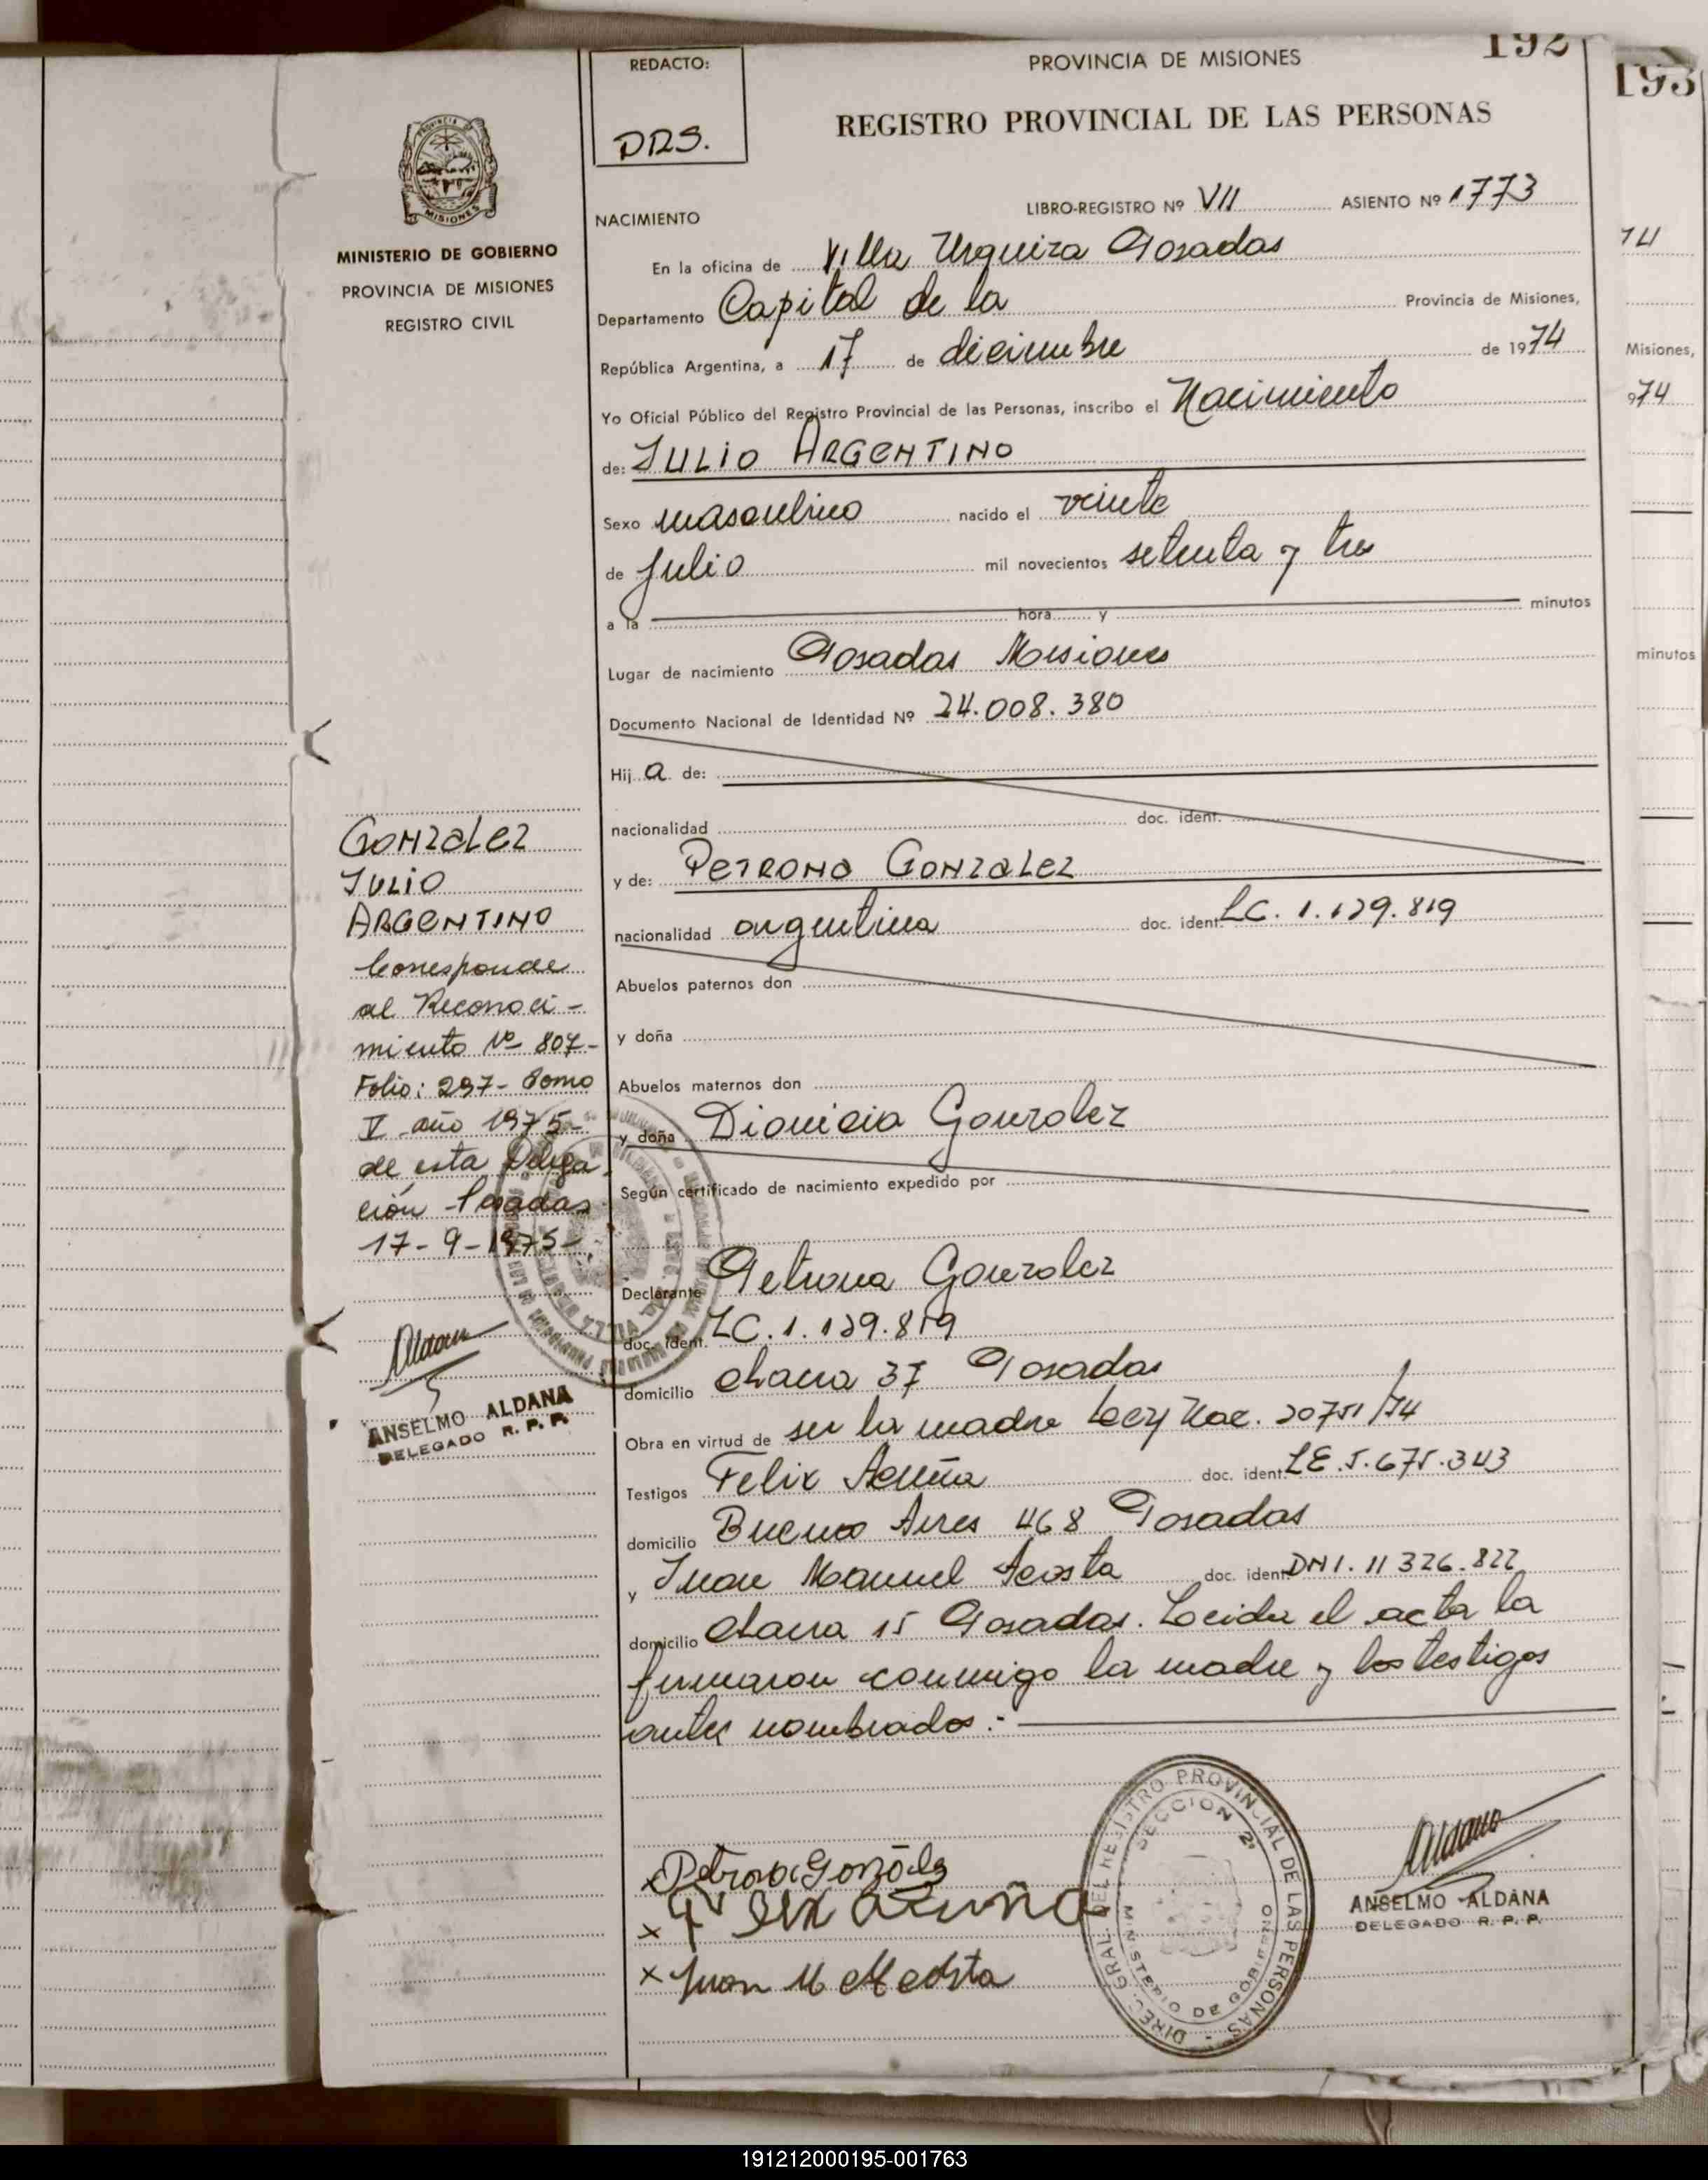 192
193
REDACTO:
DRS.
PROVINCIA DE MISIONES
REGISTRO PROVINCIAL DE LAS PERSONAS
MISIONES
MINISTERIO DE GOBIERNO
PROVINCIA DE MISIONES
REGISTRO CIVIL
NACIMIENTO
LIBRO-REGISTRO Nº VII ASIENTO Nº 1773
En la oficina de Villa Urquiza Posadas
Departamento Capital de la Provincia de Misiones,
República Argentina, a 17 de diciembre de 1974
Yo Oficial Público del Registro Provincial de las Personas, inscribo el Nacimiento
de: JULIO ARGENTINO
Sexo masculino nacido el veinte
de Julio mil novecientos setenta y tres
a la hora y minutos
Lugar de nacimiento Posadas Misiones
Documento Nacional de Identidad Nº 24.008.380
Hij a de:
nacionalidad doc. ident.
y de: PETRONA GONZALEZ
nacionalidad argentina doc. ident. LC. 1.129.819
Abuelos paternos don
y doña
Abuelos maternos don
y doña Dionicia Gonzalez
Según certificado de nacimiento expedido por
Declarante Petrona Gonzalez
doc. ident. LC. 1.129.819
domicilio chacra 37 Posadas
Obra en virtud de ser la madre Ley Nac. 20751/74
Testigos Felix Acuña doc. ident. LE. 5.675.343
domicilio Buenos Aires 468 Posadas
y Juan Manuel Acosta doc. ident. DNI. 11 326.822
domicilio chacra 15 Posadas. Leida el acta la
firmaron conmigo la madre y los testigos
antes nombrados.-
GONZALEZ
JULIO
ARGENTINO
Corresponde
al Reconoci-
miento Nº 807-
Folio: 297- Tomo
V año 1975-
de esta Delega
ción Posadas
17-9-1975-
Aldana
ANSELMO ALDANA
DELEGADO R. P. P.
x Petrona Gonzalez
x Felix acuña
x Juan M Acosta
DIREC. GRAL. DEL REGISTRO PROVINCIAL DE LAS PERSONAS
SECCION 2ª
MINISTERIO DE GOBIERNO
Aldana
ANSELMO ALDANA
DELEGADO R. P. P.
74
Misiones,
974
minutos
191212000195-001763